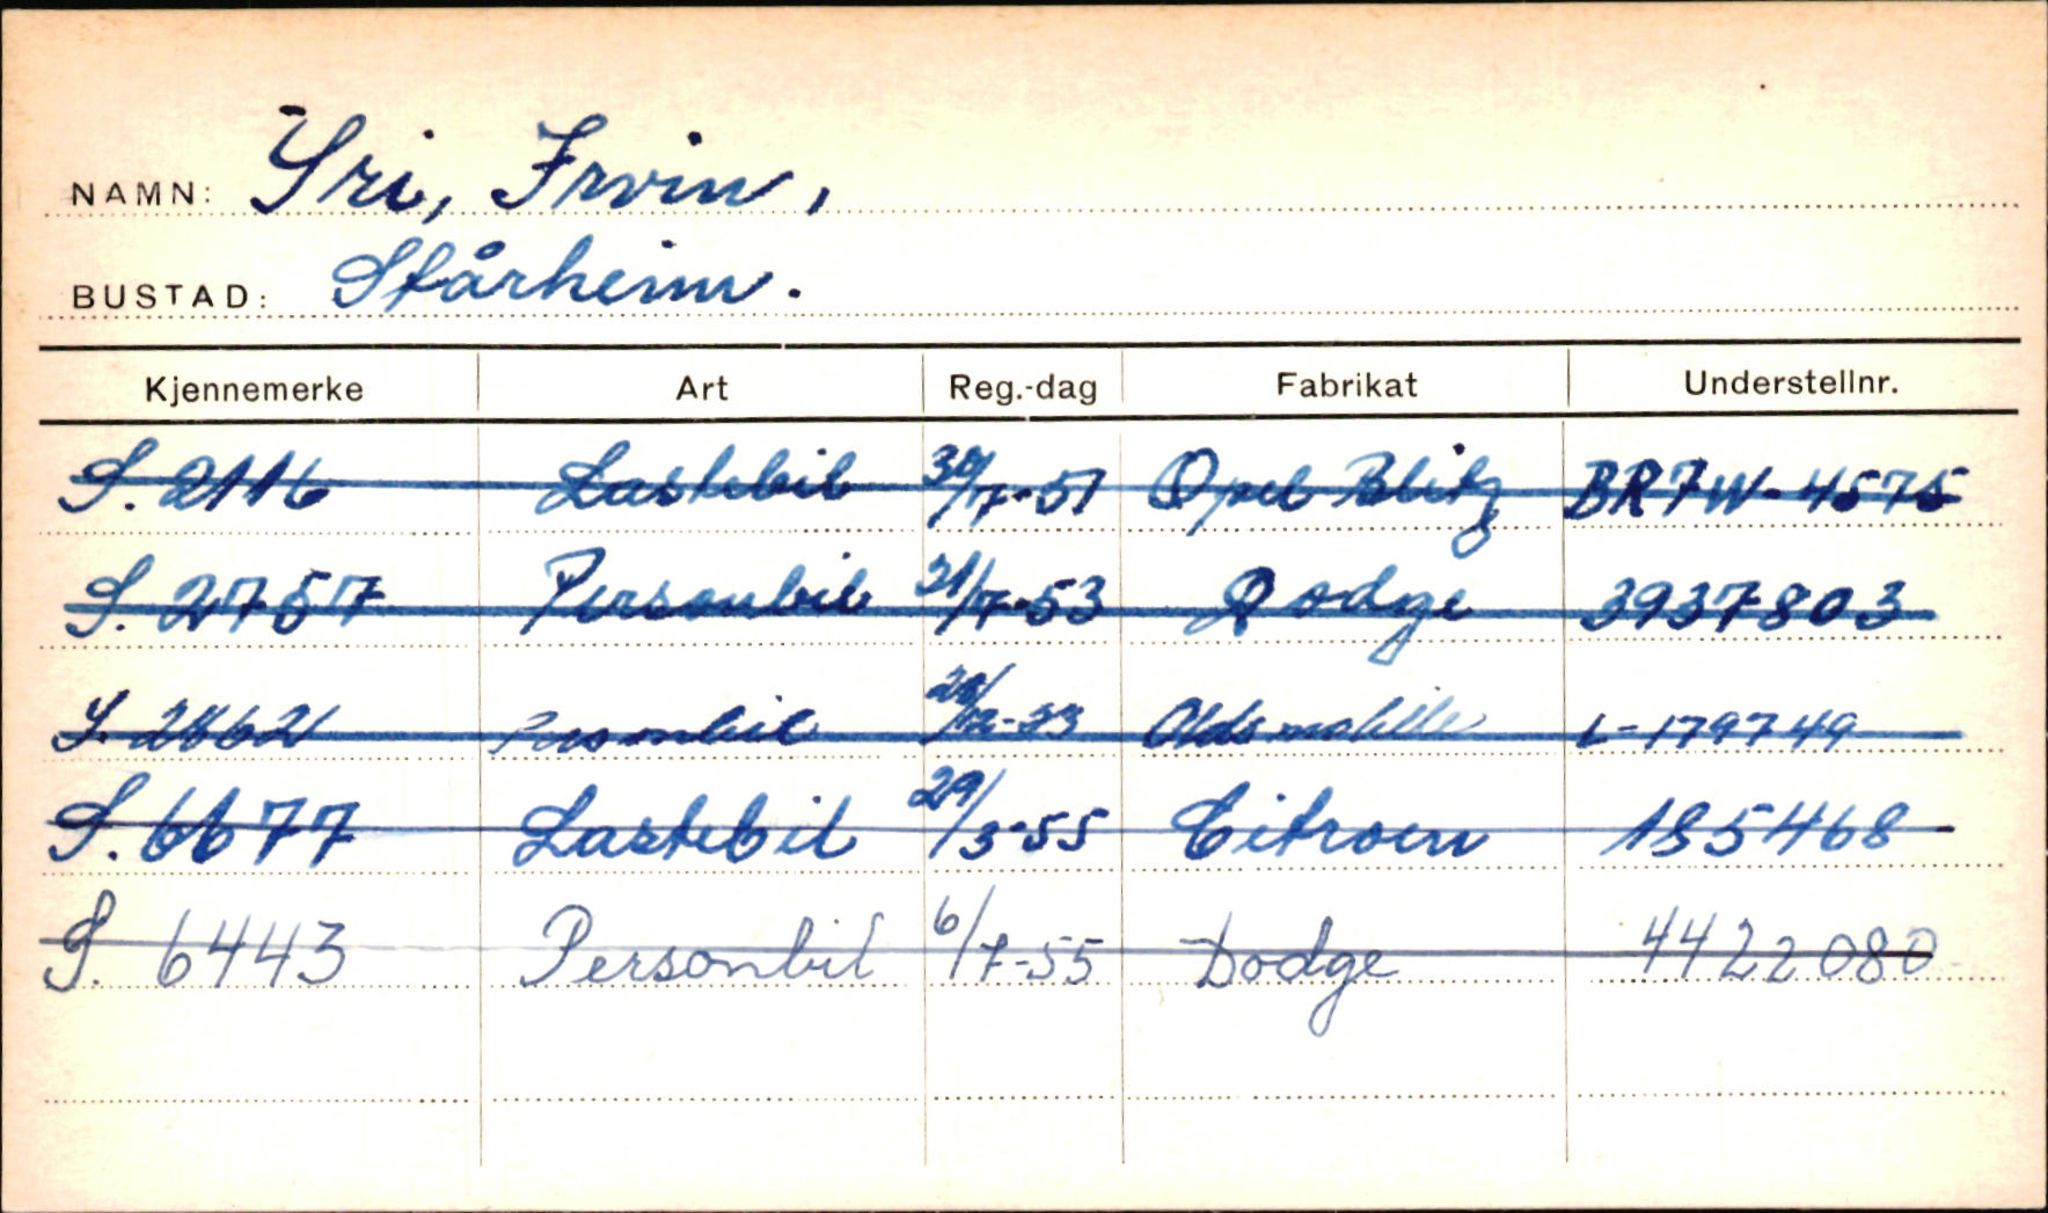 NAMN: Yri, Irvin,
BUSTAD: Stårheim.
Kjennemerke Art Reg.-dag Fabrikat Understellnr.
S. 2116 Lastebil 30/7-51 Opel Blitz BR7W-4575
S. 2757 Personbil 21/7-53 Dodge 3937803
S. 2662 Personbil /12-53 Oldsmobile L-179749
S. 6677 Lastebil 29/3-55 Citroen 185468
S. 6443 Personbil 6/7-55 Dodge 4422080